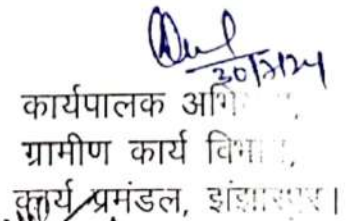 30/7/24
कार्यपालक
ग्रामीण कार्य
कार्य प्रमंडल, झंझारपुर।